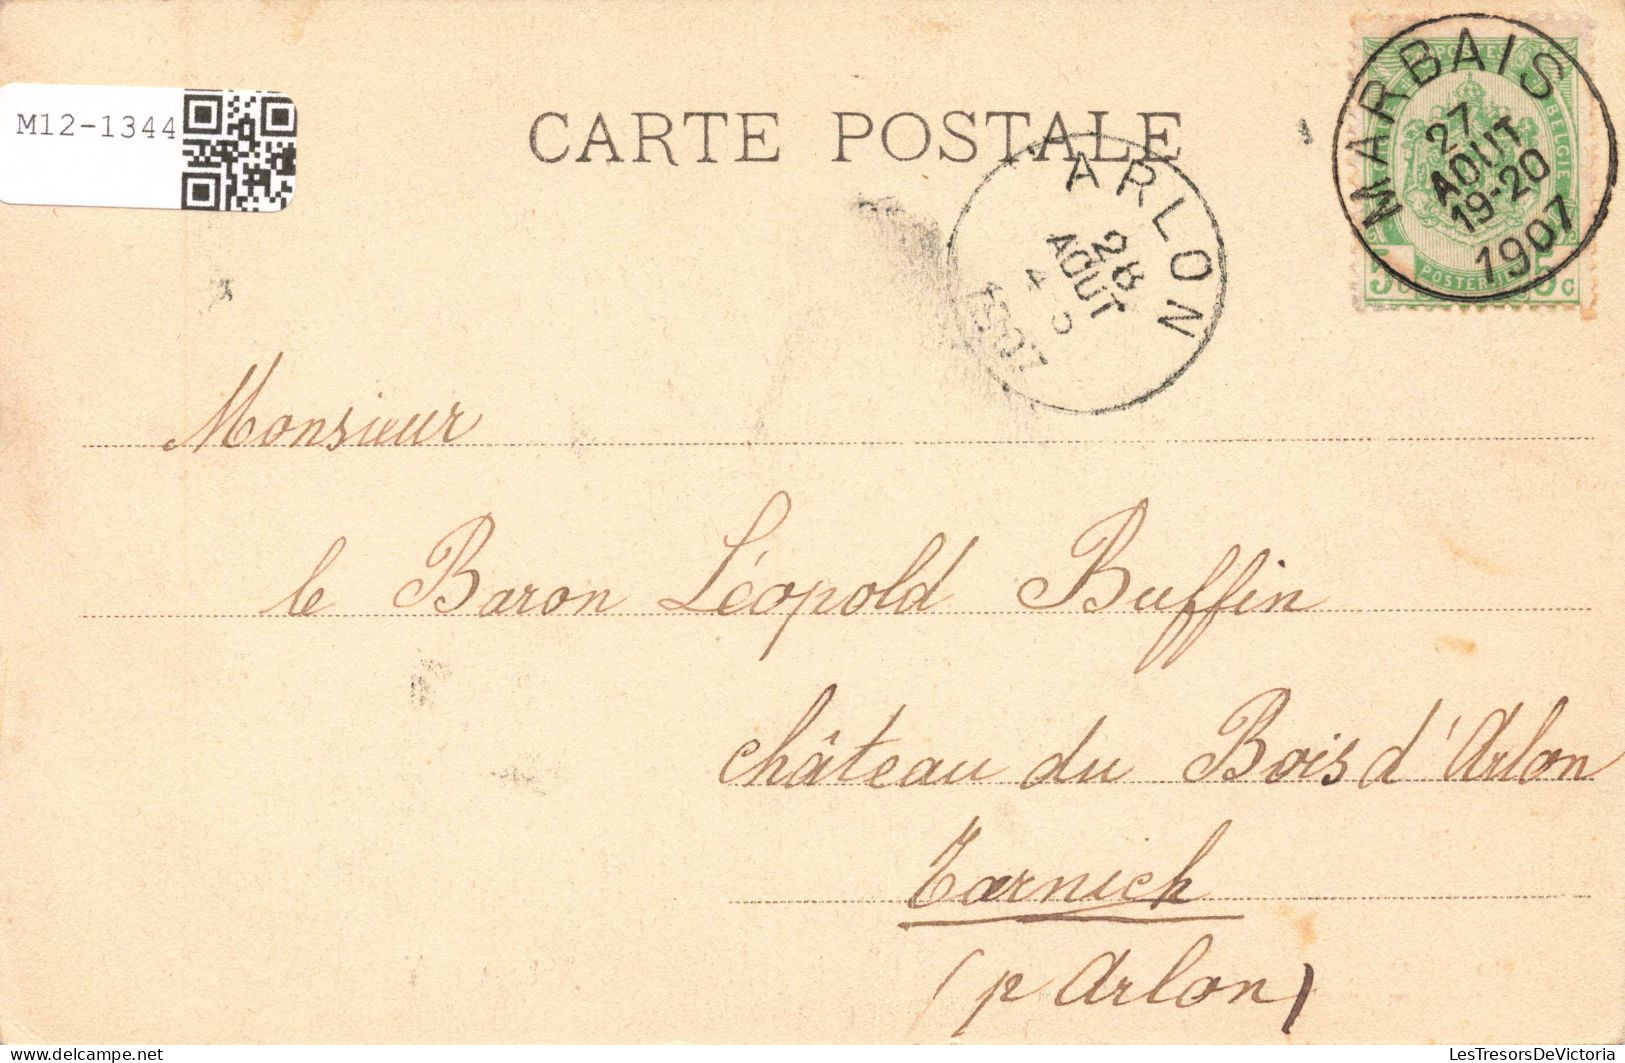 M12-1344
CARTE POSTALE
MARBAIS
27
AOUT
19-20
1907
POSTES
BELGIE
5 C
ARLON
28
AOUT
Monsieur
le Baron Léopold Buffin
château du Bois d'Arlon
Tarnich
(p Arlon)
delcampe.net
LesTresorsDeVictoria